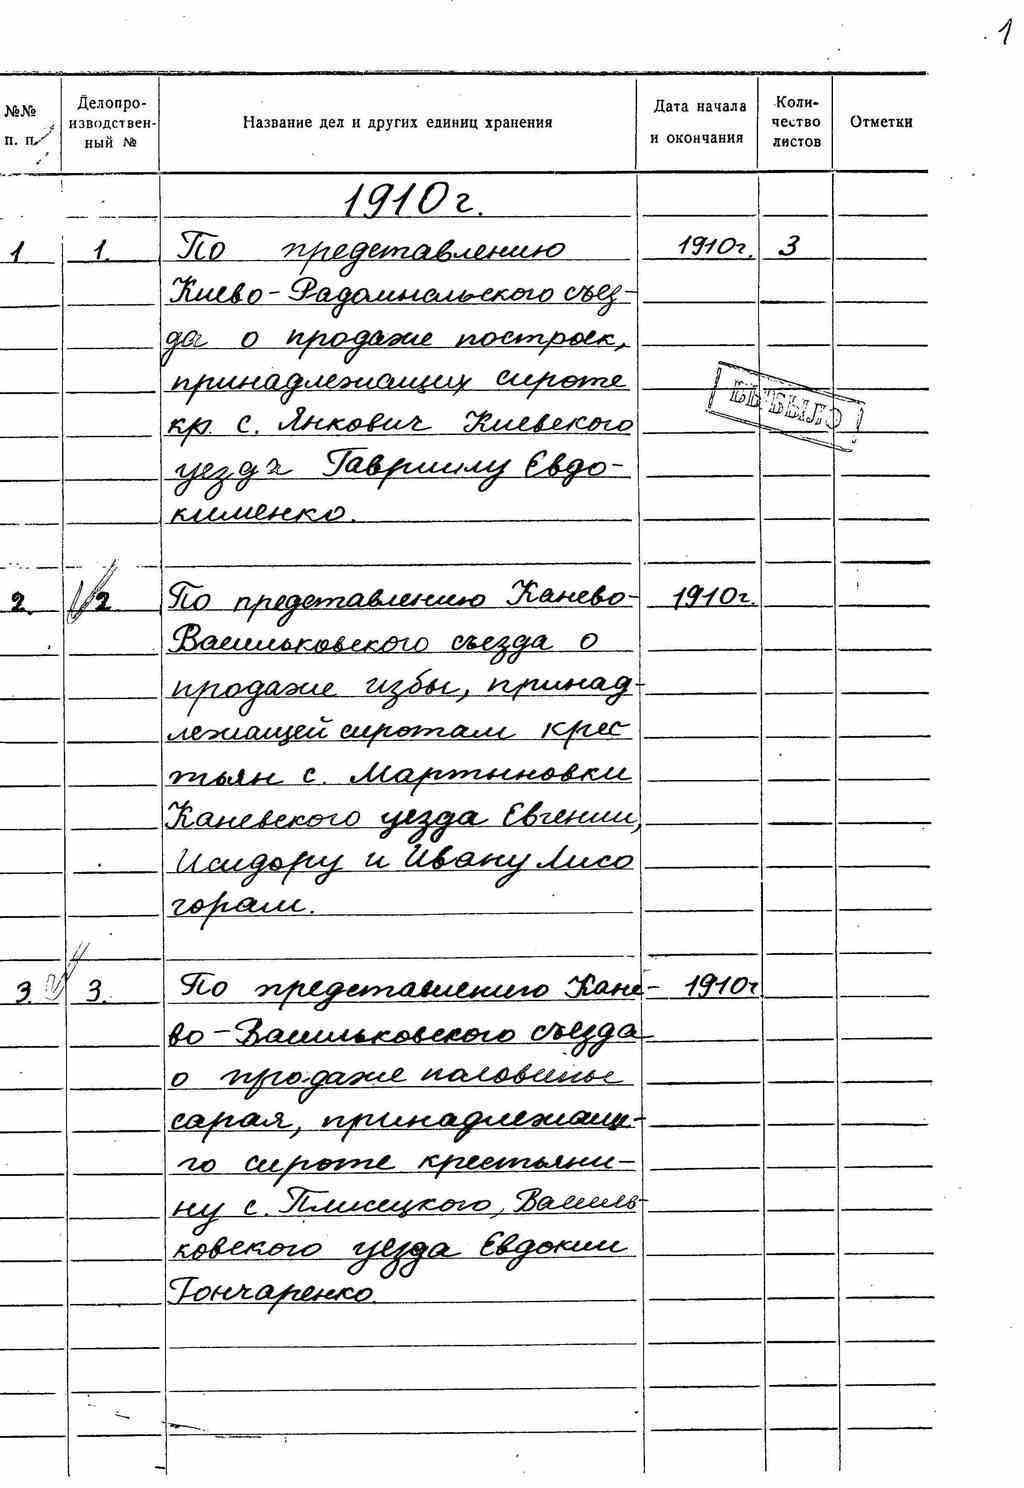 1
№№ п. п.
Делопроизводственный №
Название дел и других единиц хранения
Дата начала и окончания
Количество листов
Отметки
1910 г.
1 1. По представлению 1910г. 3
Киево-Радомысльского съез-
да о продаже построек,
принадлежащих сироте
ВЫБЫЛО
кр. с. Янкович Киевского
уезда Гавриилу Евдо-
кименко.
2. 2 По представлению Канево- 1910г.
Васильковского съезда о
продаже избы, принад-
лежащей сиротам крес
тьян с. Мартыновки
Каневского уезда Евгении,
Исидору и Ивану Лисо
горам.
3. 3. По представлению Кане- 1910г
во-Васильковского съезда
о продаже половины
сарая, принадлежаще-
го сироте крестьяни-
ну с. Плисецкого, Василь-
ковского уезда Евдокии
Гончаренко.